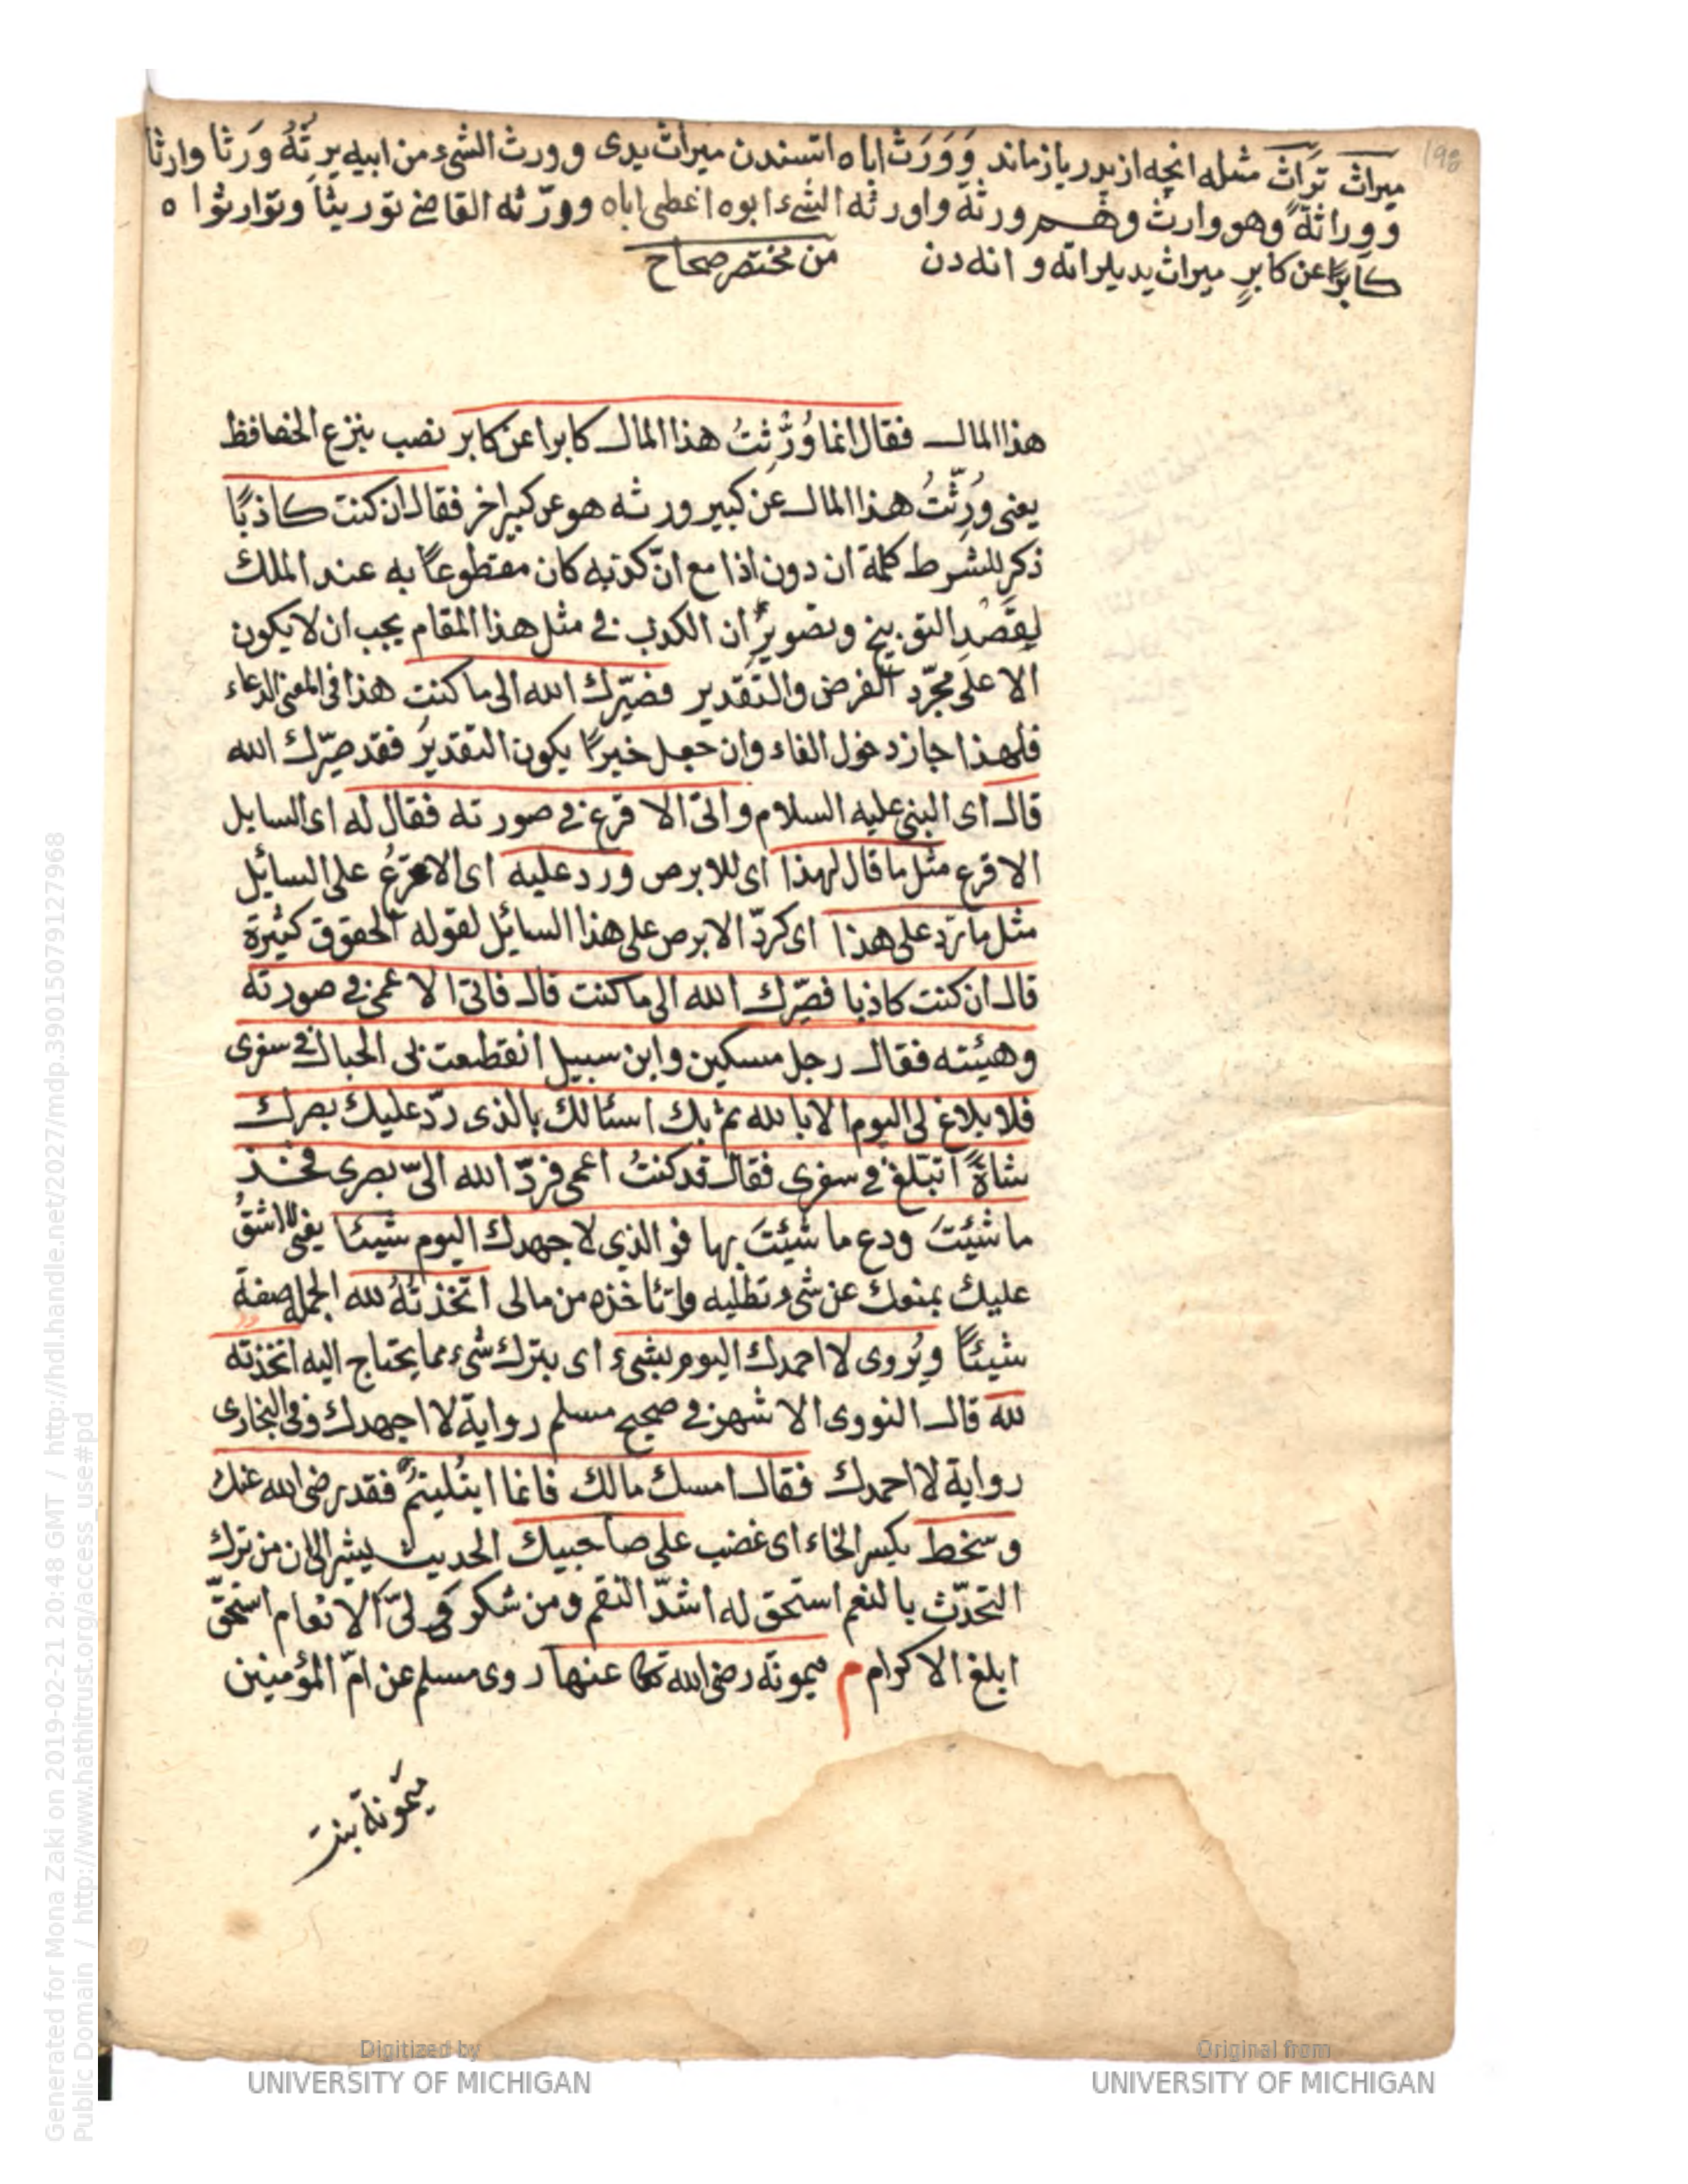 198
ميراث تراث مثله انچه از پدر باز ماند وَوَرَثَ اباه اتسندن ميراث يدى وورث الشىء من ابيه يرِثُهُ وَرَثا وارثا
ووراثةً وهو وارث وهم ورثة واورثه الشىء ابوه اعطى اباه وورّثه القاضى توريثا وتوارثوا ه
كابرًا عن كابرٍ ميراث يديلر اته و انه دن من مختصر صحاح
هذا المال فقال انما وُرِّثتُ هذا المال كابرا عن كابر نصب بنزع الخافظ
يعنى وُرِّثتُ هذا المال عن كبير ورثه هو عن كبير اخر فقال ان كنت كاذبًا
ذكر للشرط كلمة ان دون اذا مع انّ كذبه كان مقطوعًا به عند الملك
لِقَصْدِ التوبيخ وتصويرِ ان الكذب فى مثل هذا المقام يجب ان لا يكون
الا على مجرّد الفرض والتقدير فصيّرك الله الى ما كنت هذا فى المعنى الدعاء
فلهذا جاز دخول الفاء وان جعل خبرًا يكون التقديرُ فقد صيّرك الله
قال اى النبى عليه السلام واتى الاقرع فى صورته فقال له اى السايل
الاقرع مثل ما قال لهذا اى للابرص ورد عليه اى الاقرعُ على السائيل
مثل ما ردّ على هذا اى كردّ الابرص على هذا السائيل لقوله الحقوق كثيرة
قال ان كنت كاذبا فصيّرك الله الى ما كنت قال فاتى الاعمى فى صورته
وهيئته فقال رجل مسكين وابن سبيل انقطعت بى الحبال فى سفرى
فلا بلاغ لى اليوم الا بالله ثم بك اسئالك بالذى ردّ عليك بصرك
شاةً اتبلّغ فى سفرى فقال قد كنتُ اعمى فردّ الله الىّ بصرى فخذ
ما شئيتَ ودع ما شئيتَ بها فوالذي لا جهدك اليوم شيئا يعنى لا اشقُّ
عليك بمنعك عن شىء تطلبه وتأخذه من مالى اتخذتُهُ لله الجملة صفة
شيئًا ويُروى لا احمدك اليوم بشىء اى بترك شىء مما يحتاج اليه اتخذته
لله قال النووى الاشهر فى صحيح مسلم رواية لا اجهدك وفى البخارى
رواية لا احمدك فقال امسك مالك فانما ابتُليتُم فقد رضى الله عنك
وسخط بكسر الخاء اى غضب على صاحبيك الحديث يشير الى ان من ترك
التحدّث بالنعم استحق له اشدّ النقم ومن شكر فى الانعام استحقّ
ابلغ الاكرام م ميمونة رضى الله تعا عنها روى مسلم عن امّ المؤمنين
ميمونة بنت
Generated for Mona Zaki on 2019-02-21 20:48 GMT / http://hdl.handle.net/2027/mdp.39015079127968
Public Domain / http://www.hathitrust.org/access_use#pd
Digitized by
UNIVERSITY OF MICHIGAN
Original from
UNIVERSITY OF MICHIGAN